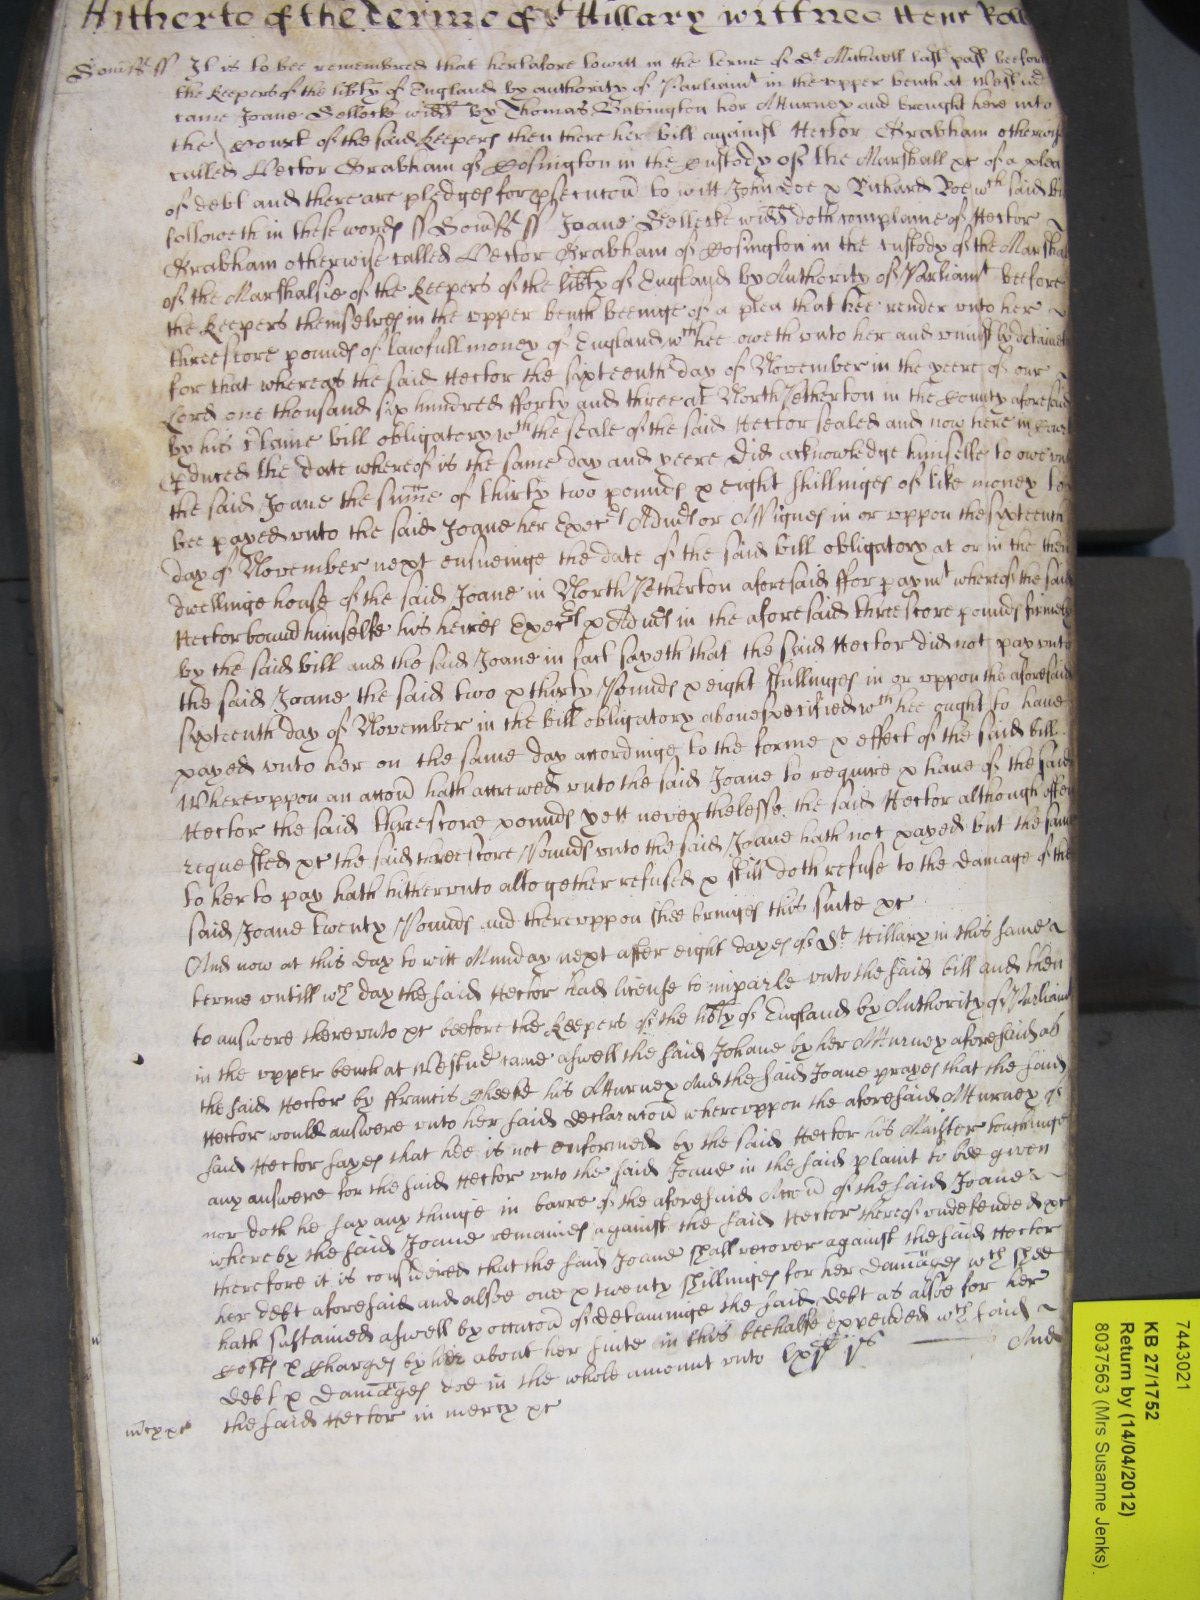 Hitherto of the terme of St Hillary wittnes Henr Roll
Som̃s̃t ss It is to bee remembred that heretofore towitt in the terme of St Michaell last past beefore
the Keepers of the lib̃ty of England by authority of Parliamt in the upper bench at Westm̃
came Joane Sellecke widd by Thomas Babington her Atturney and brought here into
the Court of the said Keepers then there her bill against Hector Grabham otherwise
called Hector Grabham of Cosington in the Custody of the Marshall &c of a plea
of debt and there are pledges for p̱secuc̃on to witt John Doe & Richard Roe wch said bill
followeth in these words ss Som̃s̃t ss Joane Sellecke widd doth complaine of Hector
Grabham otherwise called Hector Grabham of Cosington in the Custody of the Marshall
of the Marshalsie of the Keepers of the lib̃ty of England by Authority of Parliamt beefore
the Keepers themselves in the upper bench beeinge of a plea that hee render unto her
threescore pounds of lawfull money of England wch hee oweth unto her and uniustly detaineth
for that whereas the said Hector the sixteenth day of November in the yeere of our
Lord one thousand six hundred fforty and three at North Petherton in the County aforesaid
by his c̃taine bill obligatory wth the seale of the said Hector sealed and now here in Court
p̱duced the date whereof is the same day and yeere did acknowledge himselfe to owe unto
the said Joane the sum̃e of thirty two pounds & eight shillinges of like money to
bee payed unto the said Joane her Exec̃s Adm̃s or Assignes in or uppon the sixteenth
day of November next ensueinge the date of the said bill obligatory at or in the then
dwellinge house of the said Joane in North Petherton aforesaid ffor paymt whereof the said
Hector bound himselfe his heires Exec̃s & Adm̃s in the aforesaid threescore pounds firmely
by the said bill and the said Joane in fact sayeth that the said Hector did not pay unto
the said Joane the said two & thirty Pounds & eight shillinges in or uppon the aforesaid
sixteenth day of November in the bill obligatory above specified wch hee ought to have
payed unto her on the same day accordinge to the forme & effect of the said bill
Whereuppon an acc̃on hath accrewed unto the said Joane to require & have of the said
Hector the said threescore pounds yett neverthelesse the said Hector although often
requested &c the said threescore Pounds unto the said Joane hath not payed but the same
to her to pay hath hitherunto altogether refused & still doth refuse to the damage of the
said Joane twenty Pounds and thereuppon shee bringes this suite &c
And now at this day to witt Munday next after eight dayes of St Hillary in this same
terme untill wch day the said Hector had license to imparle unto the said bill and then
to answere thereunto &c beefore the Keepers of the lib̃ty of England by Authority of Parliamt
in the upper bench at Westm̃ came aswell the said Johane by her Atturney aforesaid as
the said Hector by ffrancis his Atturney And the said Joane prayes that the said
Hector would answere unto her said declarac̃on whereuppon the aforesaid Atturney of
said Hector sayes that hee is not enformed by the said Hector his Maister touchinge
any answere for the said Hector unto the said Joane in the said plaint to bee given
nor doth he say any thinge in barre of the aforesaid Acc̃on of the said Joane
whereby the said Joane remaines against the said Hector thereof undefended &c
therefore it is considered that the said Joane shall recover against the said Hector
her debt aforesaid and alsoe one & twenty shillinges for her dam̃ages wch shee
hath sustained aswell by occac̃on of detaininge the said debt as alsoe for her
costs & charges by her about her suite in this beehalfe expended wch said
debt & dam̃ages doe in the whole amount unto lxjli js And
m̃cy &c the said Hector in mercy &c
7443021
KB 27/1752
Return by (14/04/2012)
8037563 (Mrs Susanne Jenks)